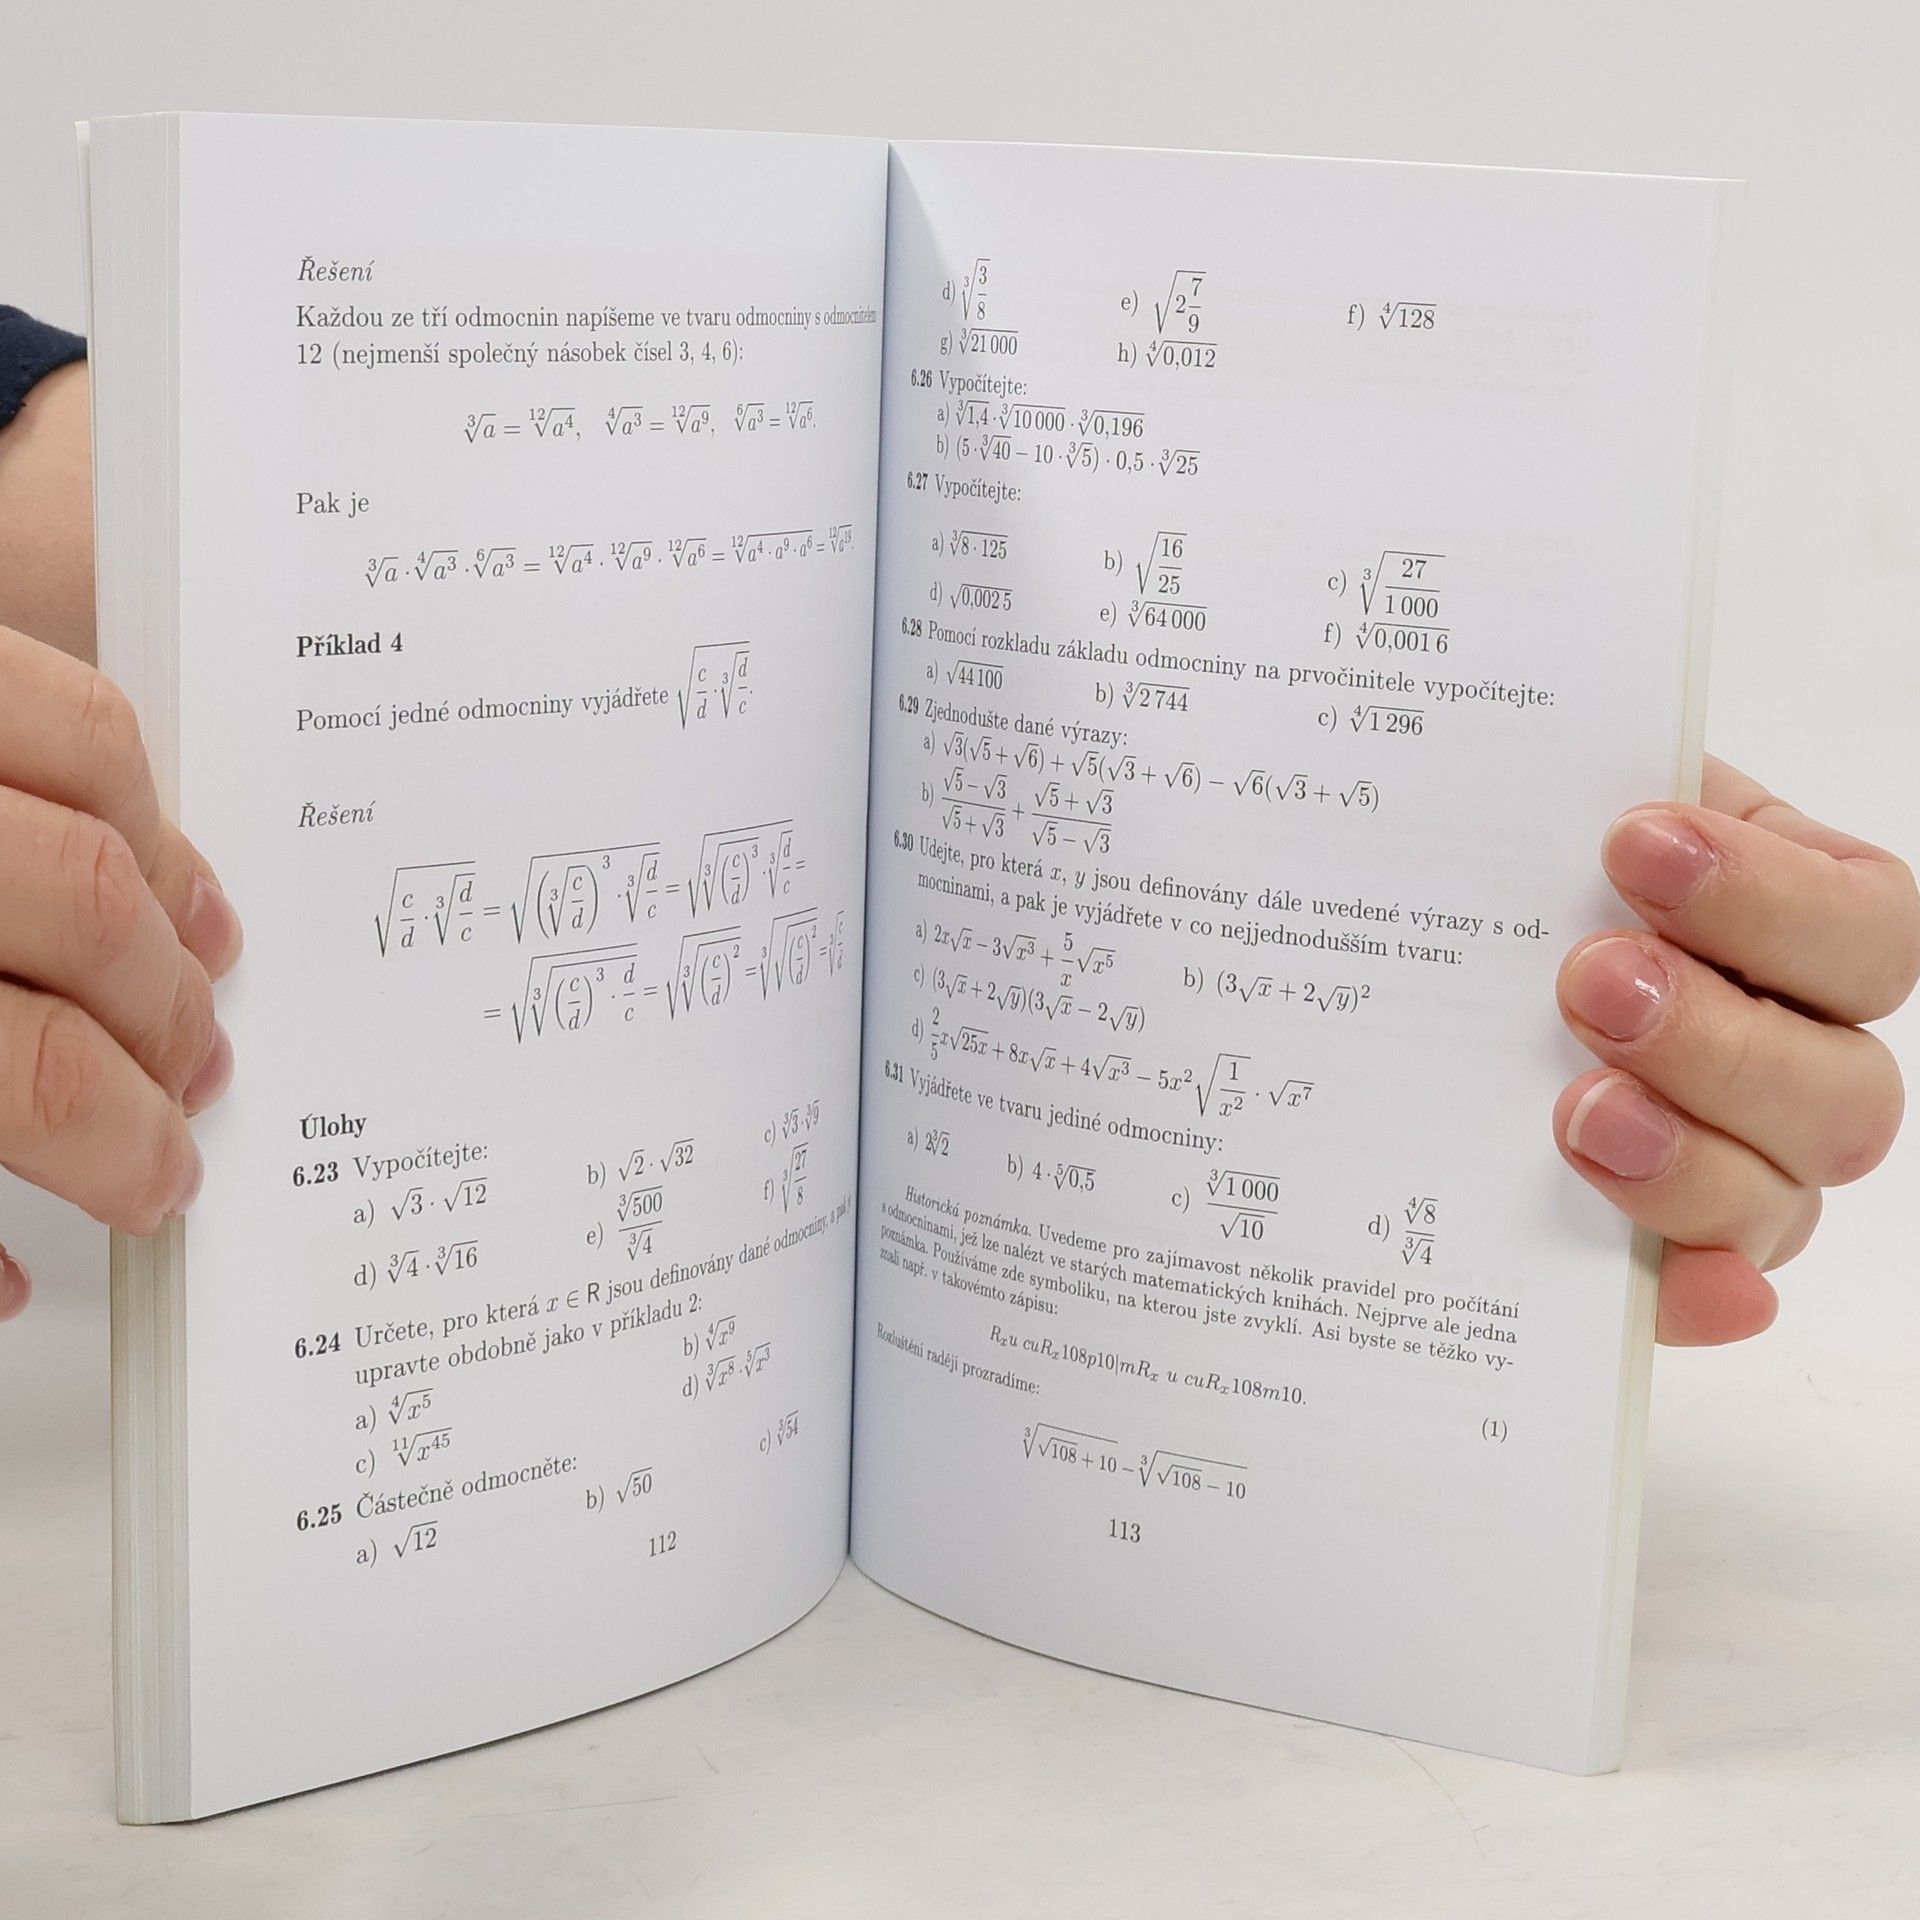 Řešení
Každou ze tří odmocnin napíšeme ve tvaru odmocniny s odmocnitelem
12 (nejmenší společný násobek čísel 3, 4, 6):
∛a = ¹²√(a⁴), ⁴√(a³) = ¹²√(a⁹), ⁶√(a³) = ¹²√(a⁶).
Pak je
∛a · ⁴√(a³) · ⁶√(a³) = ¹²√(a⁴) · ¹²√(a⁹) · ¹²√(a⁶) = ¹²√(a⁴ · a⁹ · a⁶) = ¹²√(a¹⁹).
Příklad 4
Pomocí jedné odmocniny vyjádřete √(c/d · ∛(d/c)).
Řešení
√(c/d · ∛(d/c)) = √((∛(c/d))³ · ∛(d/c)) = √(∛((c/d)³) · ∛(d/c)) =
= √(∛((c/d)³ · d/c)) = √(∛((c/d)²)) = ∛(√((c/d)²)) = ∛(c/d)
Úlohy
6.23 Vypočítejte:
a) √3 · √12 b) √2 · √32 c) ∛3 · ∛9
d) ∛4 · ∛16 e) ∛500/∛4 f) ∛(27/8)
6.24 Určete, pro která x ∈ R jsou definovány dané odmocniny, a pak je
upravte obdobně jako v příkladu 2:
a) ⁴√(x⁵) b) ⁴√(x⁹)
c) ¹¹√(x⁴⁵) d) ∛(x⁸) · ⁵√(x³)
6.25 Částečně odmocněte:
a) √12 b) √50 c) ∛54
112
d) ∛(3/8) e) √(2 7/9) f) ⁴√128
g) ∛(21 000) h) ⁴√(0,012)
6.26 Vypočítejte:
a) ∛(1,4) · ∛(10 000) · ∛(0,196)
b) (5 · ∛40 − 10 · ∛5) · 0,5 · ∛25
6.27 Vypočítejte:
a) ∛(8 · 125) b) √(16/25) c) ∛(27/1 000)
d) √(0,002 5) e) ∛(64 000) f) ⁴√(0,001 6)
6.28 Pomocí rozkladu základu odmocniny na prvočinitele vypočítejte:
a) √(44 100) b) ∛(2 744) c) ⁴√(1 296)
6.29 Zjednodušte dané výrazy:
a) √3(√5 + √6) + √5(√3 + √6) − √6(√3 + √5)
b) (√5 − √3)/(√5 + √3) + (√5 + √3)/(√5 − √3)
6.30 Udejte, pro která x, y jsou definovány dále uvedené výrazy s od-
mocninami, a pak je vyjádřete v co nejjednodušším tvaru:
a) 2x√x − 3√(x³) + 5/x √(x⁵) b) (3√x + 2√y)²
c) (3√x + 2√y)(3√x − 2√y)
d) 2/5 x√(25x) + 8x√x + 4√(x³) − 5x²√(1/x²) · √(x⁷)
6.31 Vyjádřete ve tvaru jediné odmocniny:
a) 2∛2 b) 4 · ⁵√(0,5) c) ∛(1 000)/√10 d) ⁴√8/∛4
Historická poznámka. Uvedeme pro zajímavost několik pravidel pro počítání
s odmocninami, jež lze nalézt ve starých matematických knihách. Nejprve ale jedna
poznámka. Používáme zde symboliku, na kterou jste zvyklí. Asi byste se těžko vy-
znali např. v takovémto zápisu:
Rₓu cuRₓ108p10|mRₓ u cuRₓ108m10.
Rozluštění raději prozradíme:
∛(√108 + 10) − ∛(√108 − 10) (1)
113